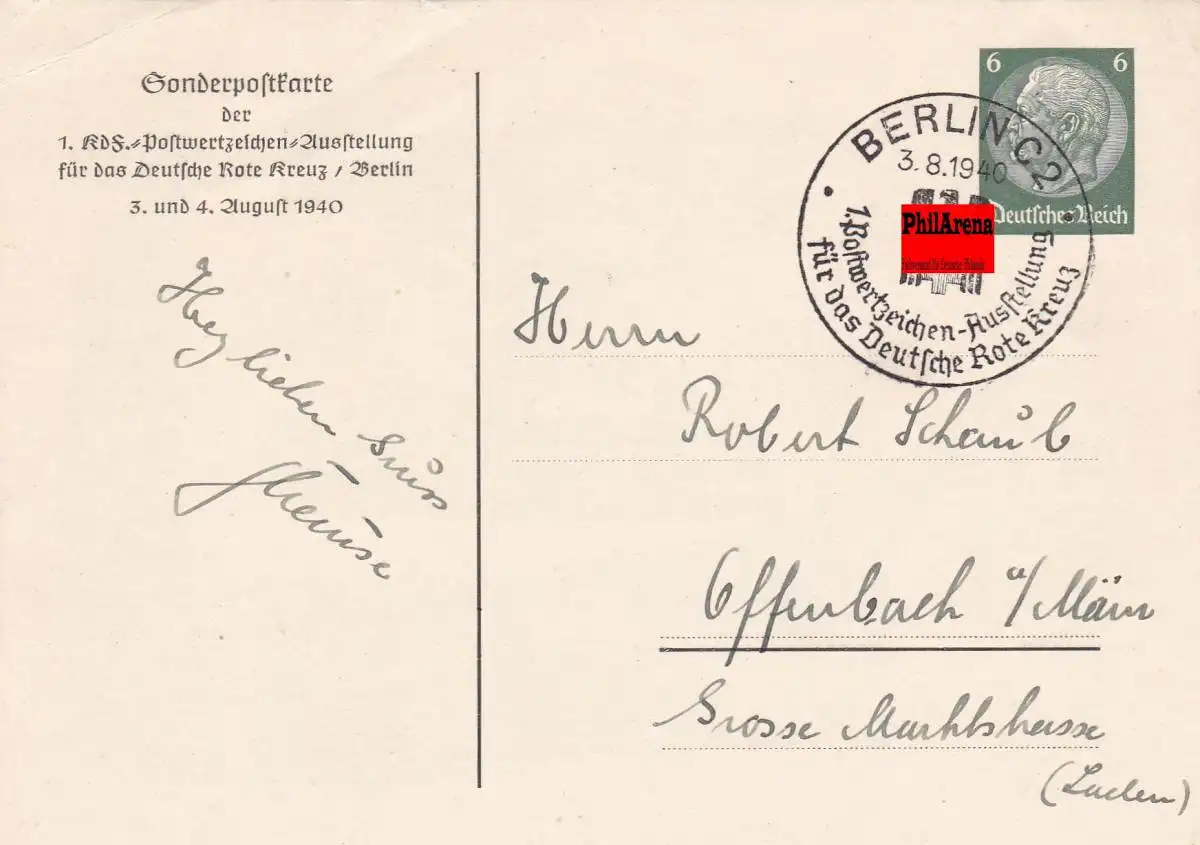 Sonderpostkarte
der
1. KdF.-Postwertzeichen-Ausstellung
für das Deutsche Rote Kreuz / Berlin
3. und 4. August 1940
6 6
Deutsches Reich
BERLIN C2
3.8.1940
1. Postwertzeichen-Ausstellung
für das Deutsche Rote Kreuz
PhilArena
Herzlichen Gruss
Herrn
Robert Schaub
Offenbach a/Main
Grosse Marktstrasse
(Laden)